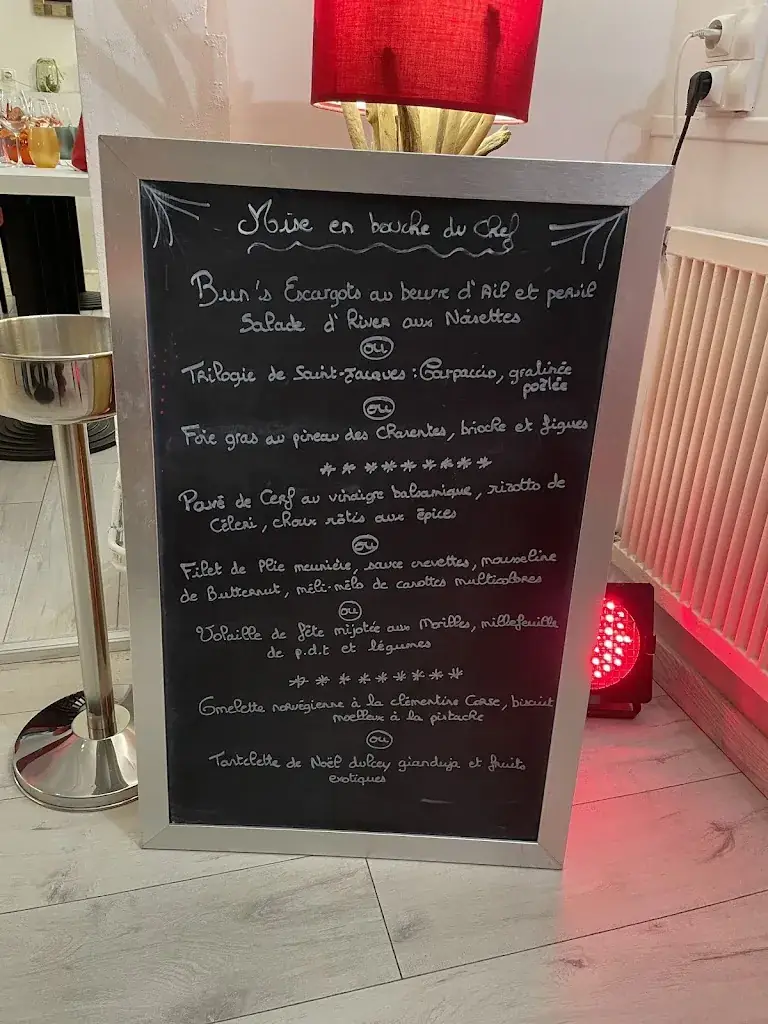 Mise en bouche du Chef
Bun's Escargots au beurre d'Ail et persil
Salade d'Hiver aux Noisettes
ou
Trilogie de Saint-Jacques : Carpaccio, gratinée
poêlée
ou
Foie gras au pineau des Charentes, brioche et figues
********
Pavé de Cerf au vinaigre balsamique, rizotto de
Céleri, choux rôtis aux épices
ou
Filet de Plie meunière, sauce crevettes, mousseline
de Butternut, méli-mélo de carottes multicolores
ou
Volaille de fête mijotée aux Morilles, millefeuille
de p.d.t et légumes
********
Omelette norvégienne à la clémentine Corse, biscuit
moelleux à la pistache
ou
Tartelette de Noël dulcey gianduja et fruits
exotiques